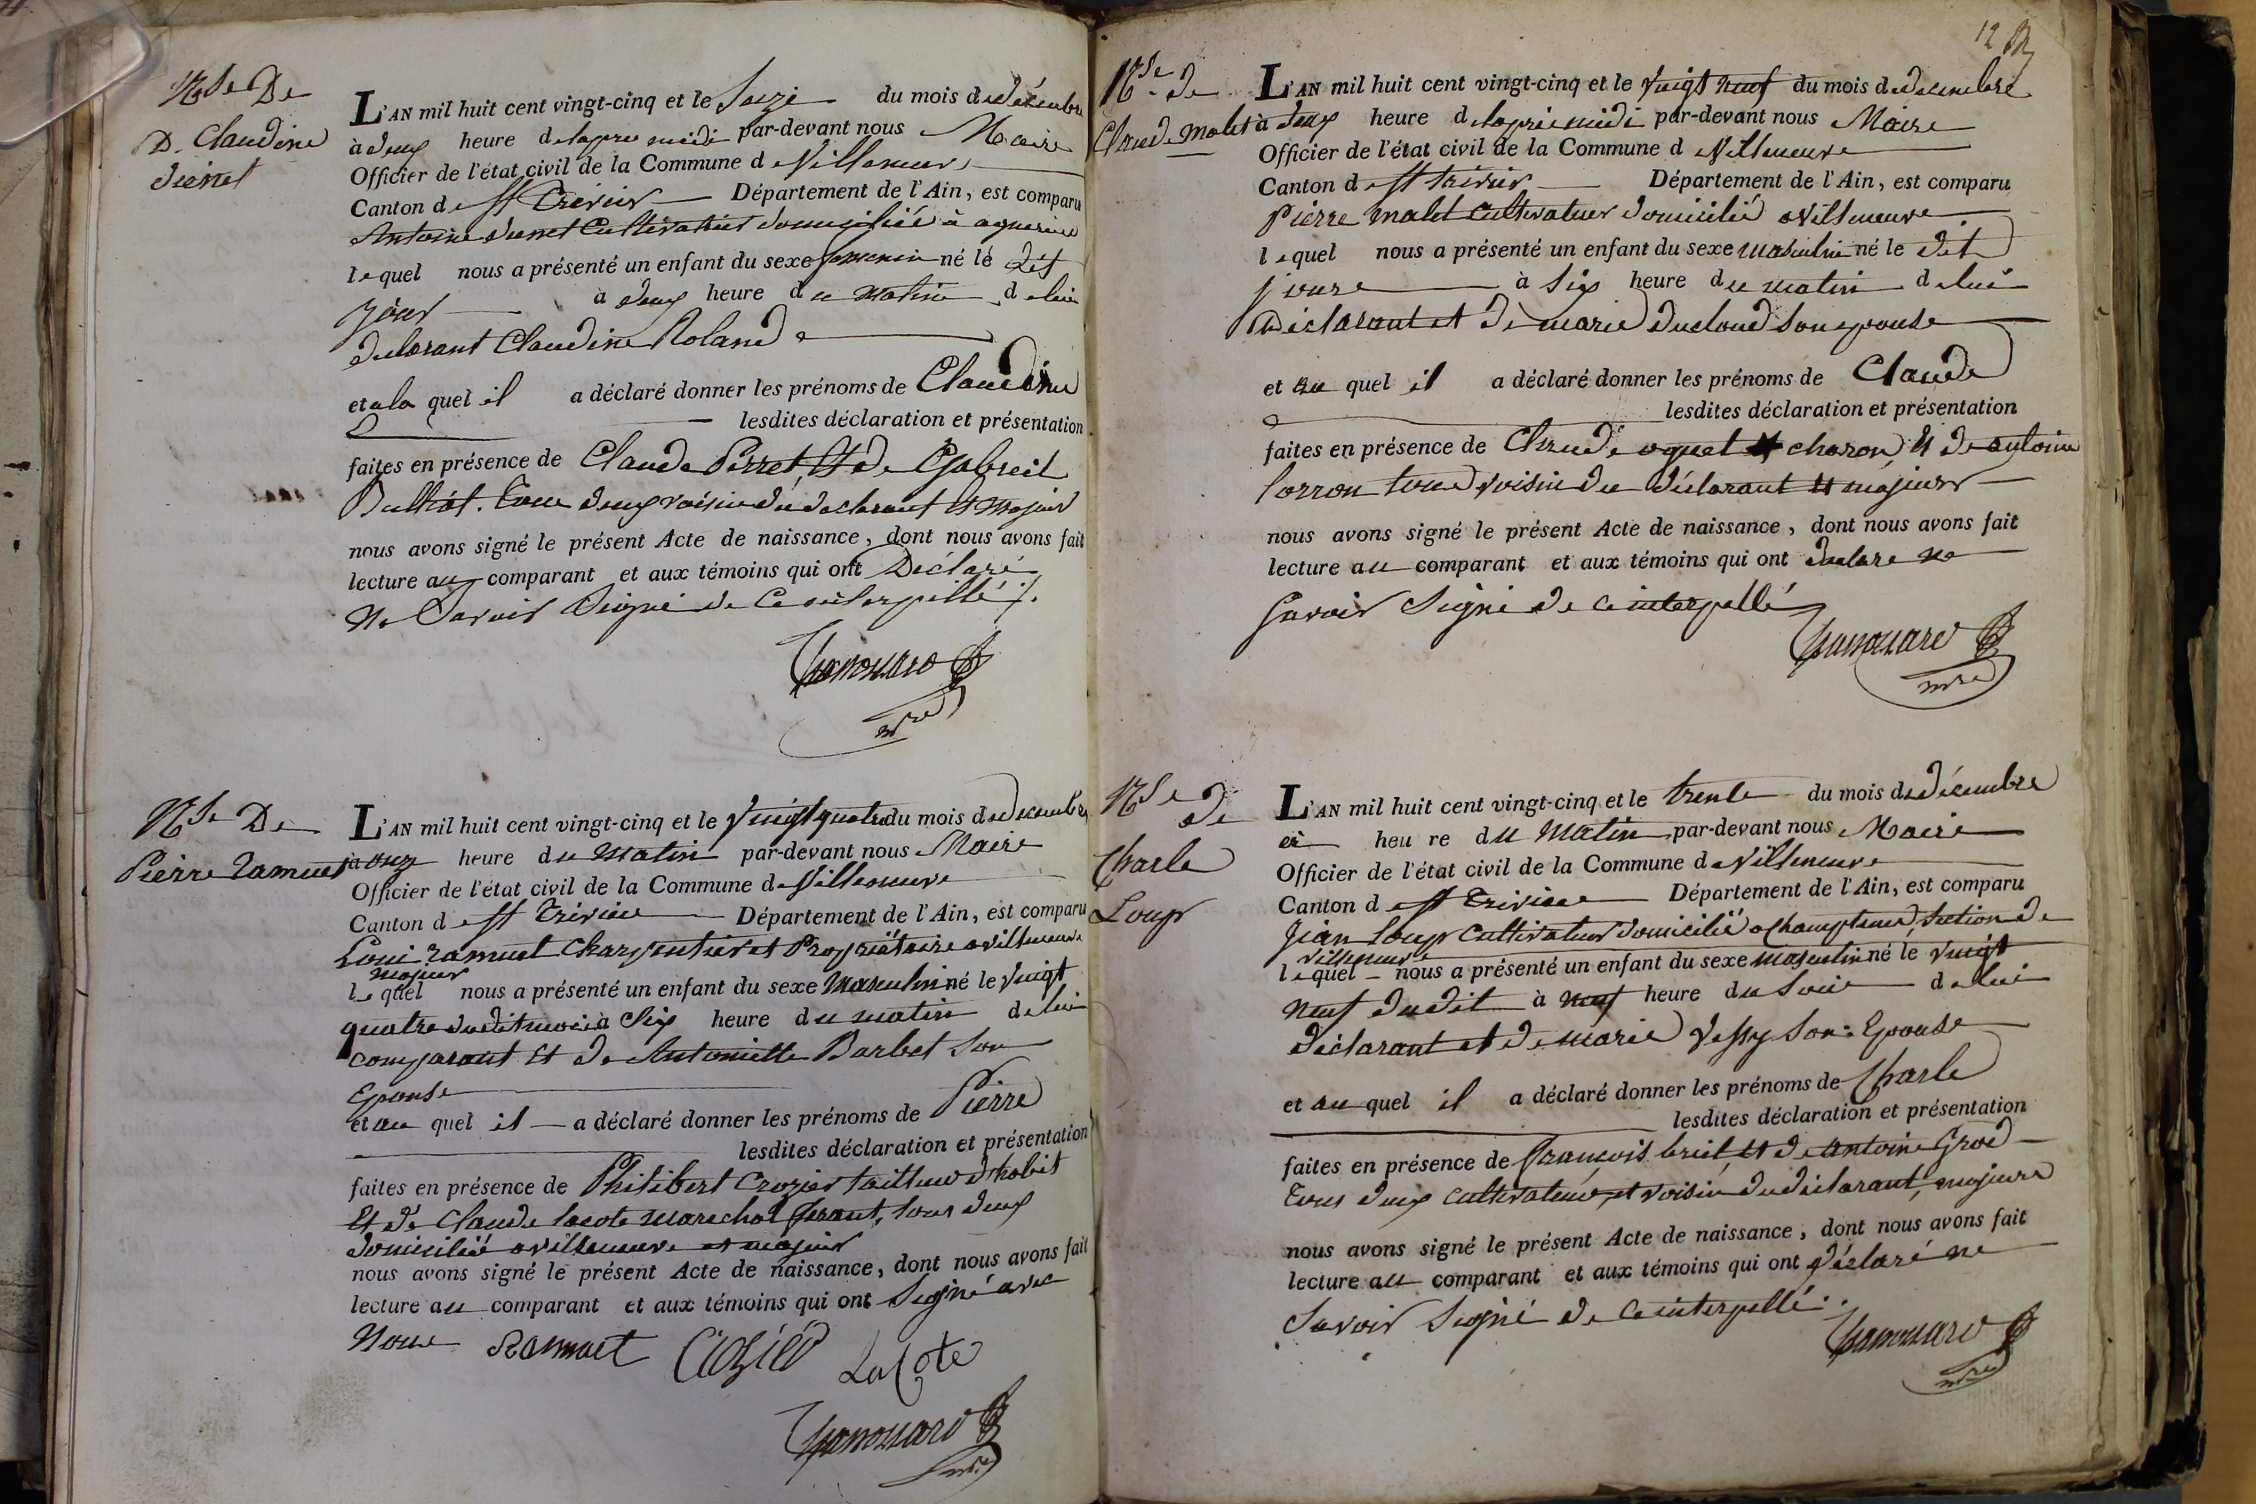 Nse De
D. Claudine
L'AN mil huit cent vingt-cinq et le Seize du mois de décembre
à deux heure de lapres midi par-devant nous Maire
Officier de l'état civil de la Commune de Villeneuve
Canton de St Trivier Département de l'Ain, est comparu
Antoine Cultivateur domicilié à
lequel nous a présenté un enfant du sexe feminin né le dit
jour à deux heure du matin de lui
declarant Claudine Roland
et a la quel il a déclaré donner les prénoms de Claudine
lesdites déclaration et présentation
faites en présence de Claude Perret, Et de Gabreil
Bulliat. Tous deux voisin du declarant Et majeur
nous avons signé le présent Acte de naissance, dont nous avons fait
lecture au comparant et aux témoins qui ont Déclaré
Ne Savoir Signé de Ce interpellé ./.
mre
Nse De
Pierre Ramuet
L'AN mil huit cent vingt-cinq et le Vingt quatre du mois de decembre
à onze heure du Matin par-devant nous Maire
Officier de l'état civil de la Commune de Villeneuve
Canton de St Trivier Département de l'Ain, est comparu
Loui Ramuet Charpentier et Propriétaire a villeneuve
majeur
lequel nous a présenté un enfant du sexe Masculin né le Vingt
quatre dudit mois à Six heure du matin de lui
comparant Et de Antoinette Barbet Son
Epouse
et au quel il a déclaré donner les prénoms de Pierre
lesdites déclaration et présentation
faites en présence de Philibert Crozier tailleur d'habit
Et de Claude lacote marechal ferant, tous deux
domicilié a villeneuve et majeur
nous avons signé le présent Acte de naissance, dont nous avons fait
lecture au comparant et aux témoins qui ont Signé avec
Nous Ramuet Crozier LaCote
mre
12
Nse de
Claude Malet
L'AN mil huit cent vingt-cinq et le Vingt neuf du mois de decembre
à deux heure de lapriè midi par-devant nous Maire
Officier de l'état civil de la Commune de Villeneuve
Canton de St trivier Département de l'Ain, est comparu
Pierre malet Cultivateur domicilié a villeneuve
lequel nous a présenté un enfant du sexe masculin né le dit
joure à Six heure du matin de lui
Déclarant et de marie ducloud son epouse
et au quel il a déclaré donner les prénoms de Claude
lesdites déclaration et présentation
faites en présence de Claude charon, Et de antoine
Corron tous voisin du déclarant Et majeur
nous avons signé le présent Acte de naissance, dont nous avons fait
lecture au comparant et aux témoins qui ont declare ne
Savoir Signé de ce interpellé
mre
Nse de
Charle
Loup
L'AN mil huit cent vingt-cinq et le trente du mois de décembre
heure du Matin par-devant nous Maire
Officier de l'état civil de la Commune de Villeneuve
Canton de St Trivier Département de l'Ain, est comparu
Jean Loup Cultivateur domicilié a Section de
villeneuve
lequel nous a présenté un enfant du sexe masculin né le vingt
neuf dudit à neuf heure du Soir de lui
déclarant et de marie Vessy Son Epouse
et au quel il a déclaré donner les prénoms de Charle
lesdites déclaration et présentation
faites en présence de francois briel Et de antoine Gros
tous deux cultivateur, et voisin du déclarant, majeure
nous avons signé le présent Acte de naissance, dont nous avons fait
lecture au comparant et aux témoins qui ont déclaré ne
Savoir Signé de ce interpellé
mre